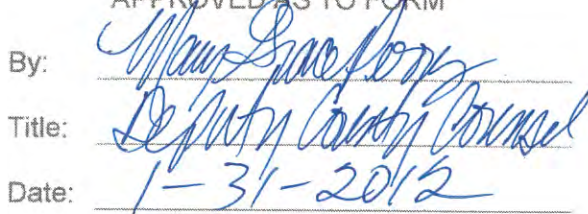 APPROVED AS TO FORM
By: Mary Grace
Title: Deputy County Counsel
Date: 1-31-2012